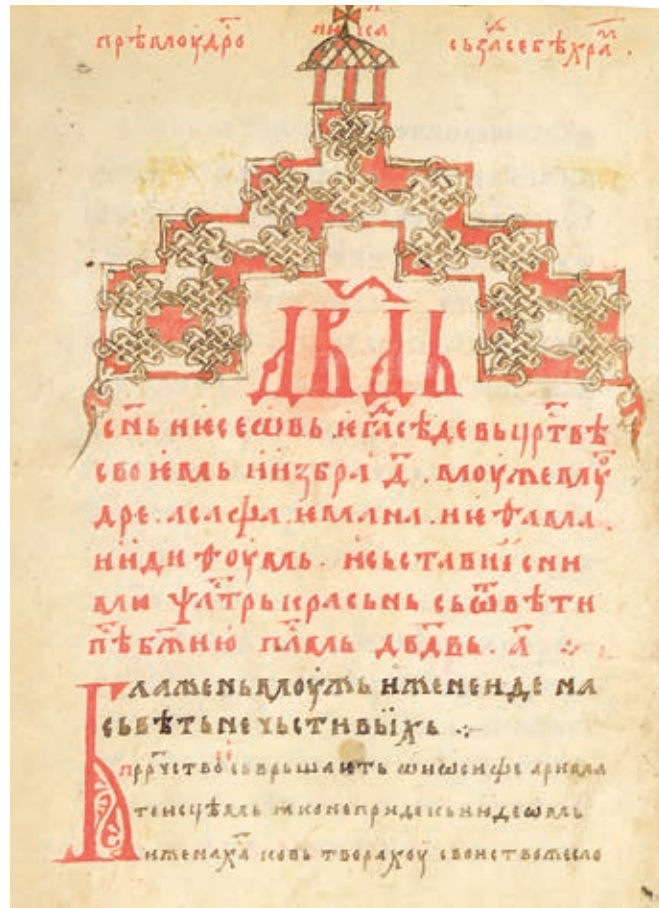 прѣмоудро пи са съꙁⷣасебѣхраⷨ .
Дв҃дь
сн҃ь иесеѡвь . иегⷣасѣде вь црⷭтвѣ
своиемь иизбра д҃ . моужемоуⷣ
дре . асафа . иемана . иеѳама .
иидиѳоумь . исьстави сни
мы ѱлⷮтрь красьнь сьѿвѣти
пѣ бж҃ию п҃лмь дв҃двь . а҃
Блаженьмоужь иженеиде на
сьвѣтьнечьстивыихь
прⷪрчство се сьврьшають ѡиѡсифе арима
теисцѣмь ꙗконеприде кьиюдеѡмь
иженаха҃ ковь творахоу своиство